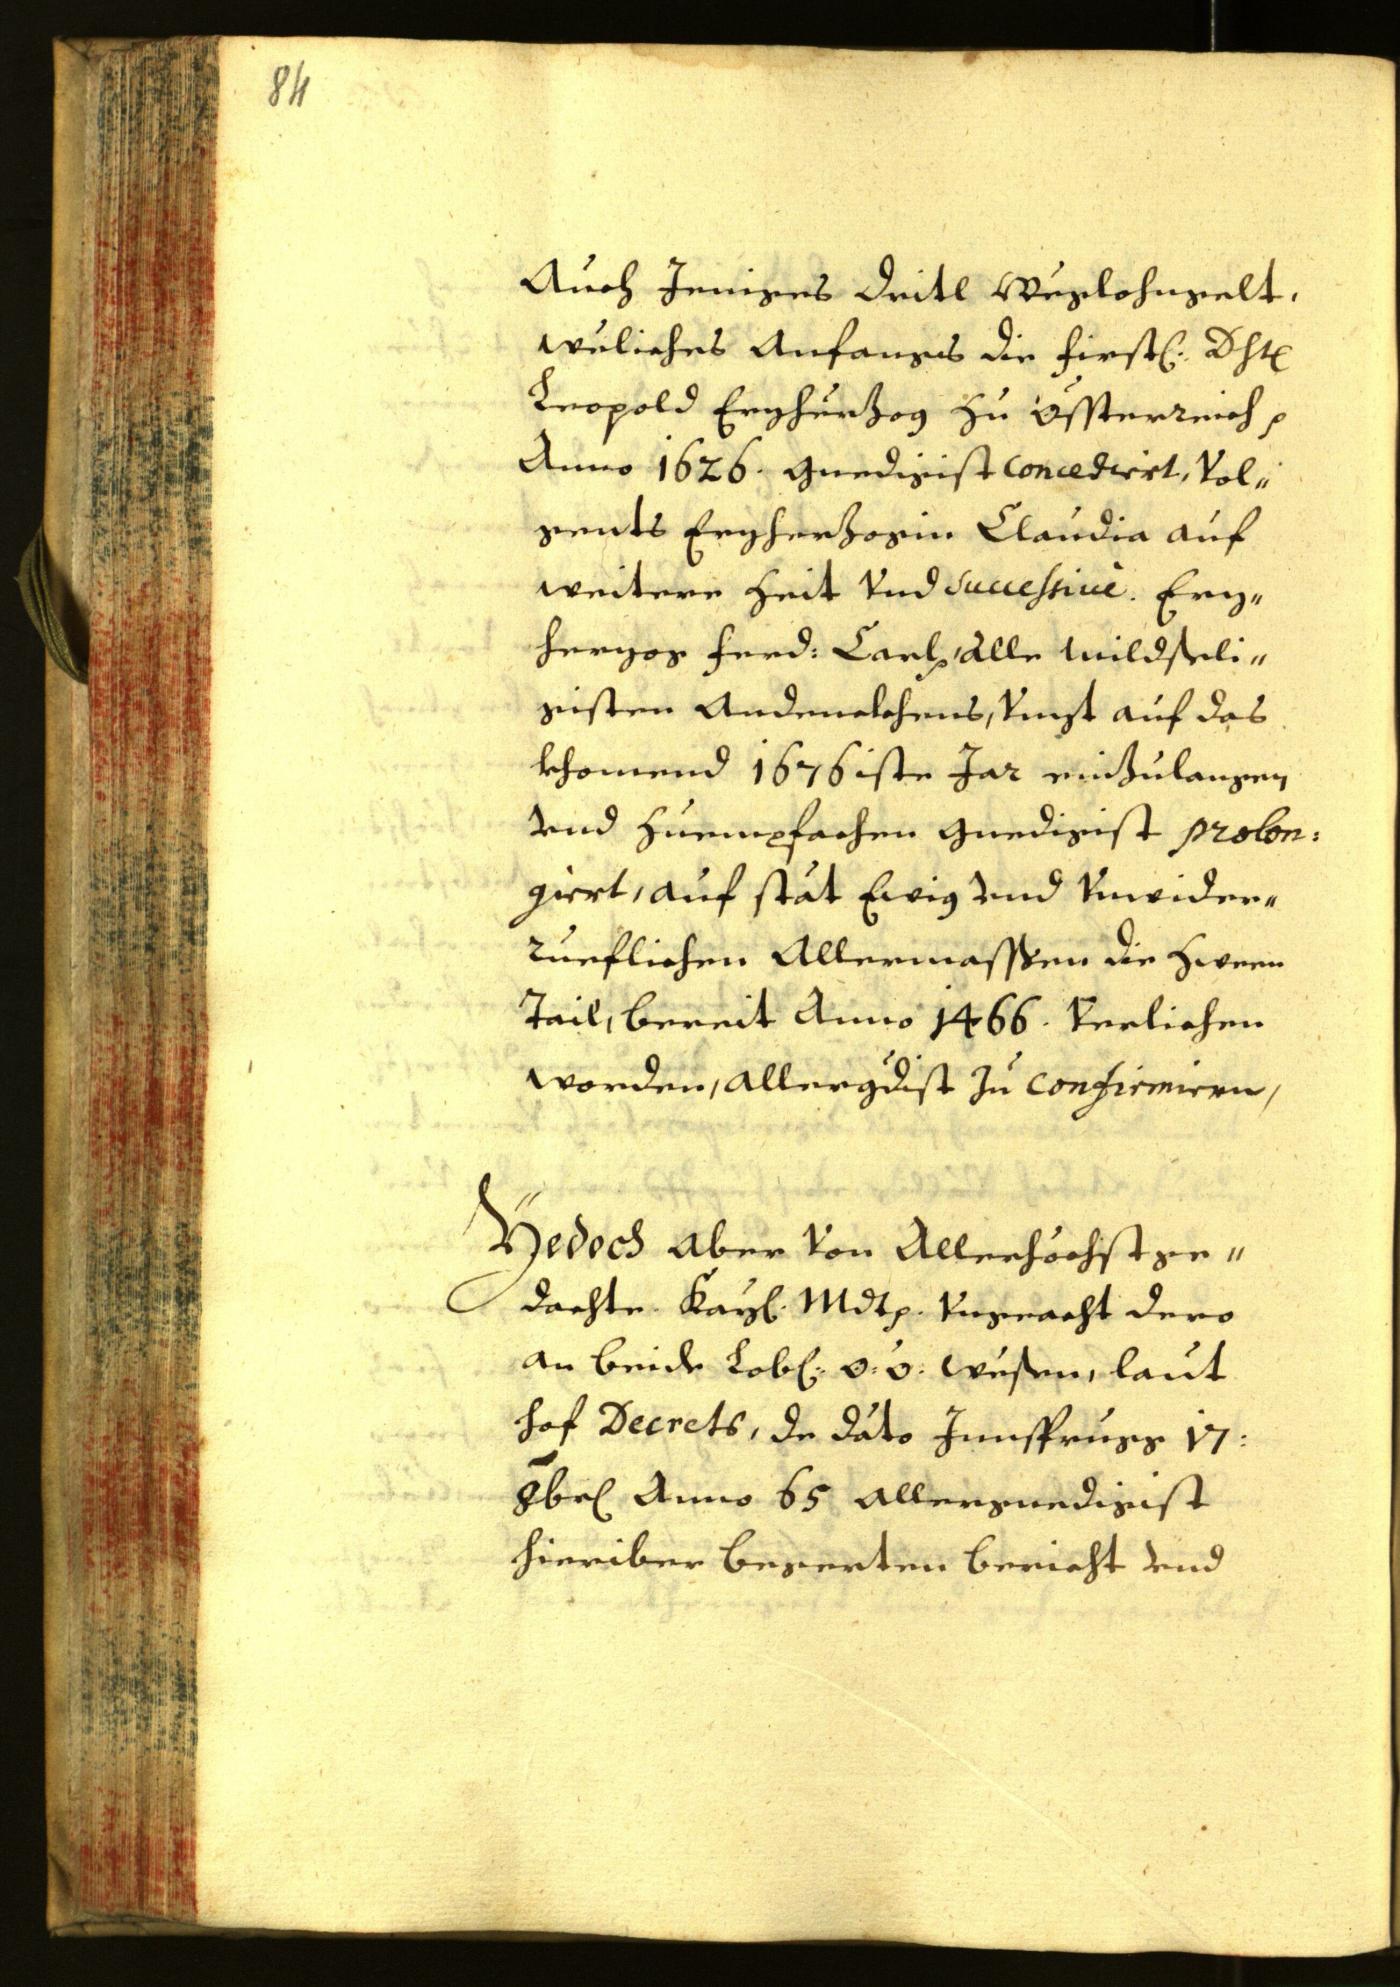 84
Auch Jeniges dritl Weglohngelt,
weliches Anfangs die firstl: Dhtl
Leopold Erzherzog zu Össterreich p
Anno 1626. gnedigist concedirt, Vol„
gents Erzherzogin Claudia auf
weitere Zeit Vnd successiue. Erz„
herzog Ferd: Carl p, Alle mildseli„
gisten Andenckhens, Vnzt auf das
khomend 1676iste Jar einzulangen
vnd zuempfachen gnedigist prolon:
girt, auf stät Ewig vnd Vnwider„
rueflichen Allermassen die zween
Tail, bereit Anno 1466. Verlichen
worden, allergdist zu confirmiern,
Yedoch aber Von Allerhöchstge„
dachte Kaysl. Mdt p. Vngeacht dero
an beide Lobl: O: Ö: Wesen, laut
hof Decrets, de dáto Innsprugg 17:
8brl Anno 65 allergnedigist
hieriber begerten bericht vnd